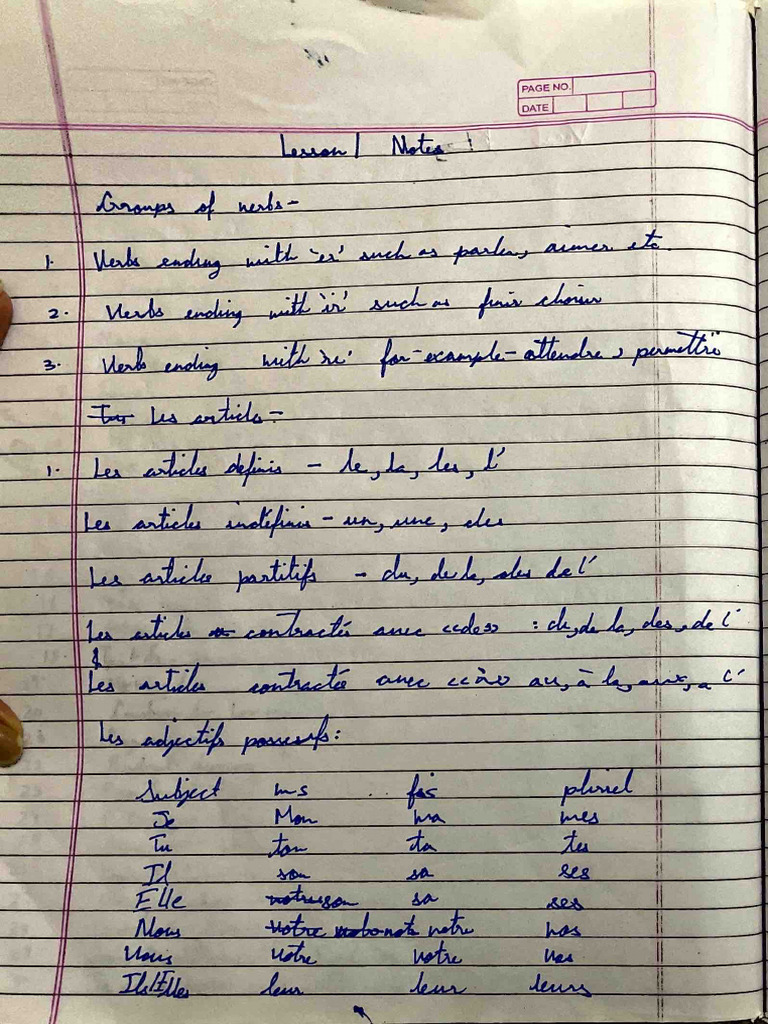 PAGE NO.
DATE
Lesson 1 Notes
Groups of verbs-
1. Verbs ending with 'er' such as parler, aimer etc.
2. Verbs ending with 'ir' such as finir choisir
3. Verb ending with 're' for-example- attendre, permettre
Les articles-
1. Les articles définis - le, la, les, l'
Les articles indéfinis - un, une, des
Les articles partitifs - du, de la, des de l'
Les articles contractés avec <<de>> : du, de la, des, de l'
&
Les articles contractés avec <<à>> au, à la, aux, a l'
Les adjectifs possessifs:
Subject ms fs pluriel
Je Mon ma mes
Tu ton ta tes
Il son sa ses
Elle son sa ses
Nous notre nos
Vous votre votre vos
Ils/Elles leur leur leurs